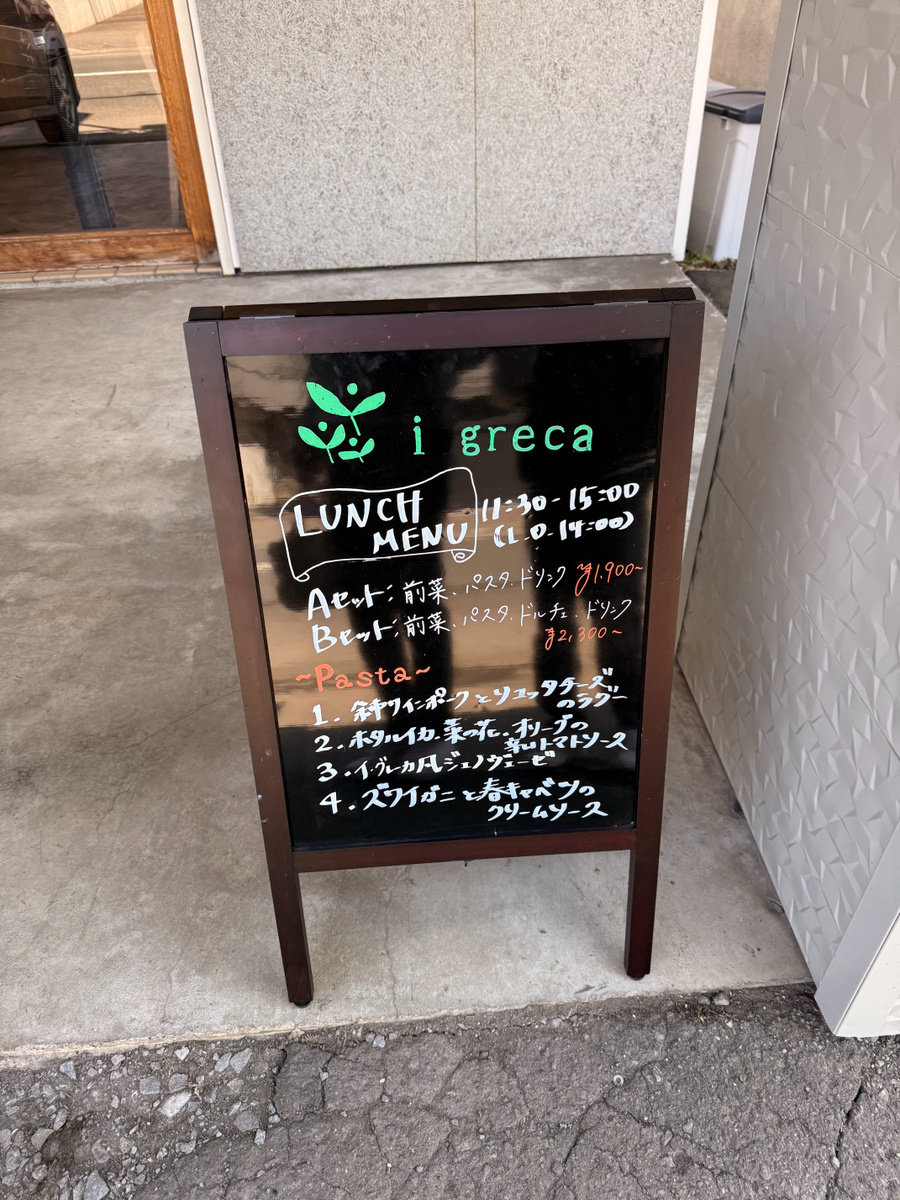 i greca
LUNCH
MENU
11:30-15:00
(L.O-14:00)
Aセット:前菜、パスタ.ドリンク ¥1,900~
Bセット:前菜、パスタ.ドルチェ.ドリンク
¥2,300~
~Pasta~
1. ワインポークとリコッタチーズ
のラグー
2.ホタルイカ.菜の花.オリーブの
辛いトマトソース
3.イ・グレーカ風ジェノヴェーゼ
4.ズワイガニと春キャベツの
クリームソース